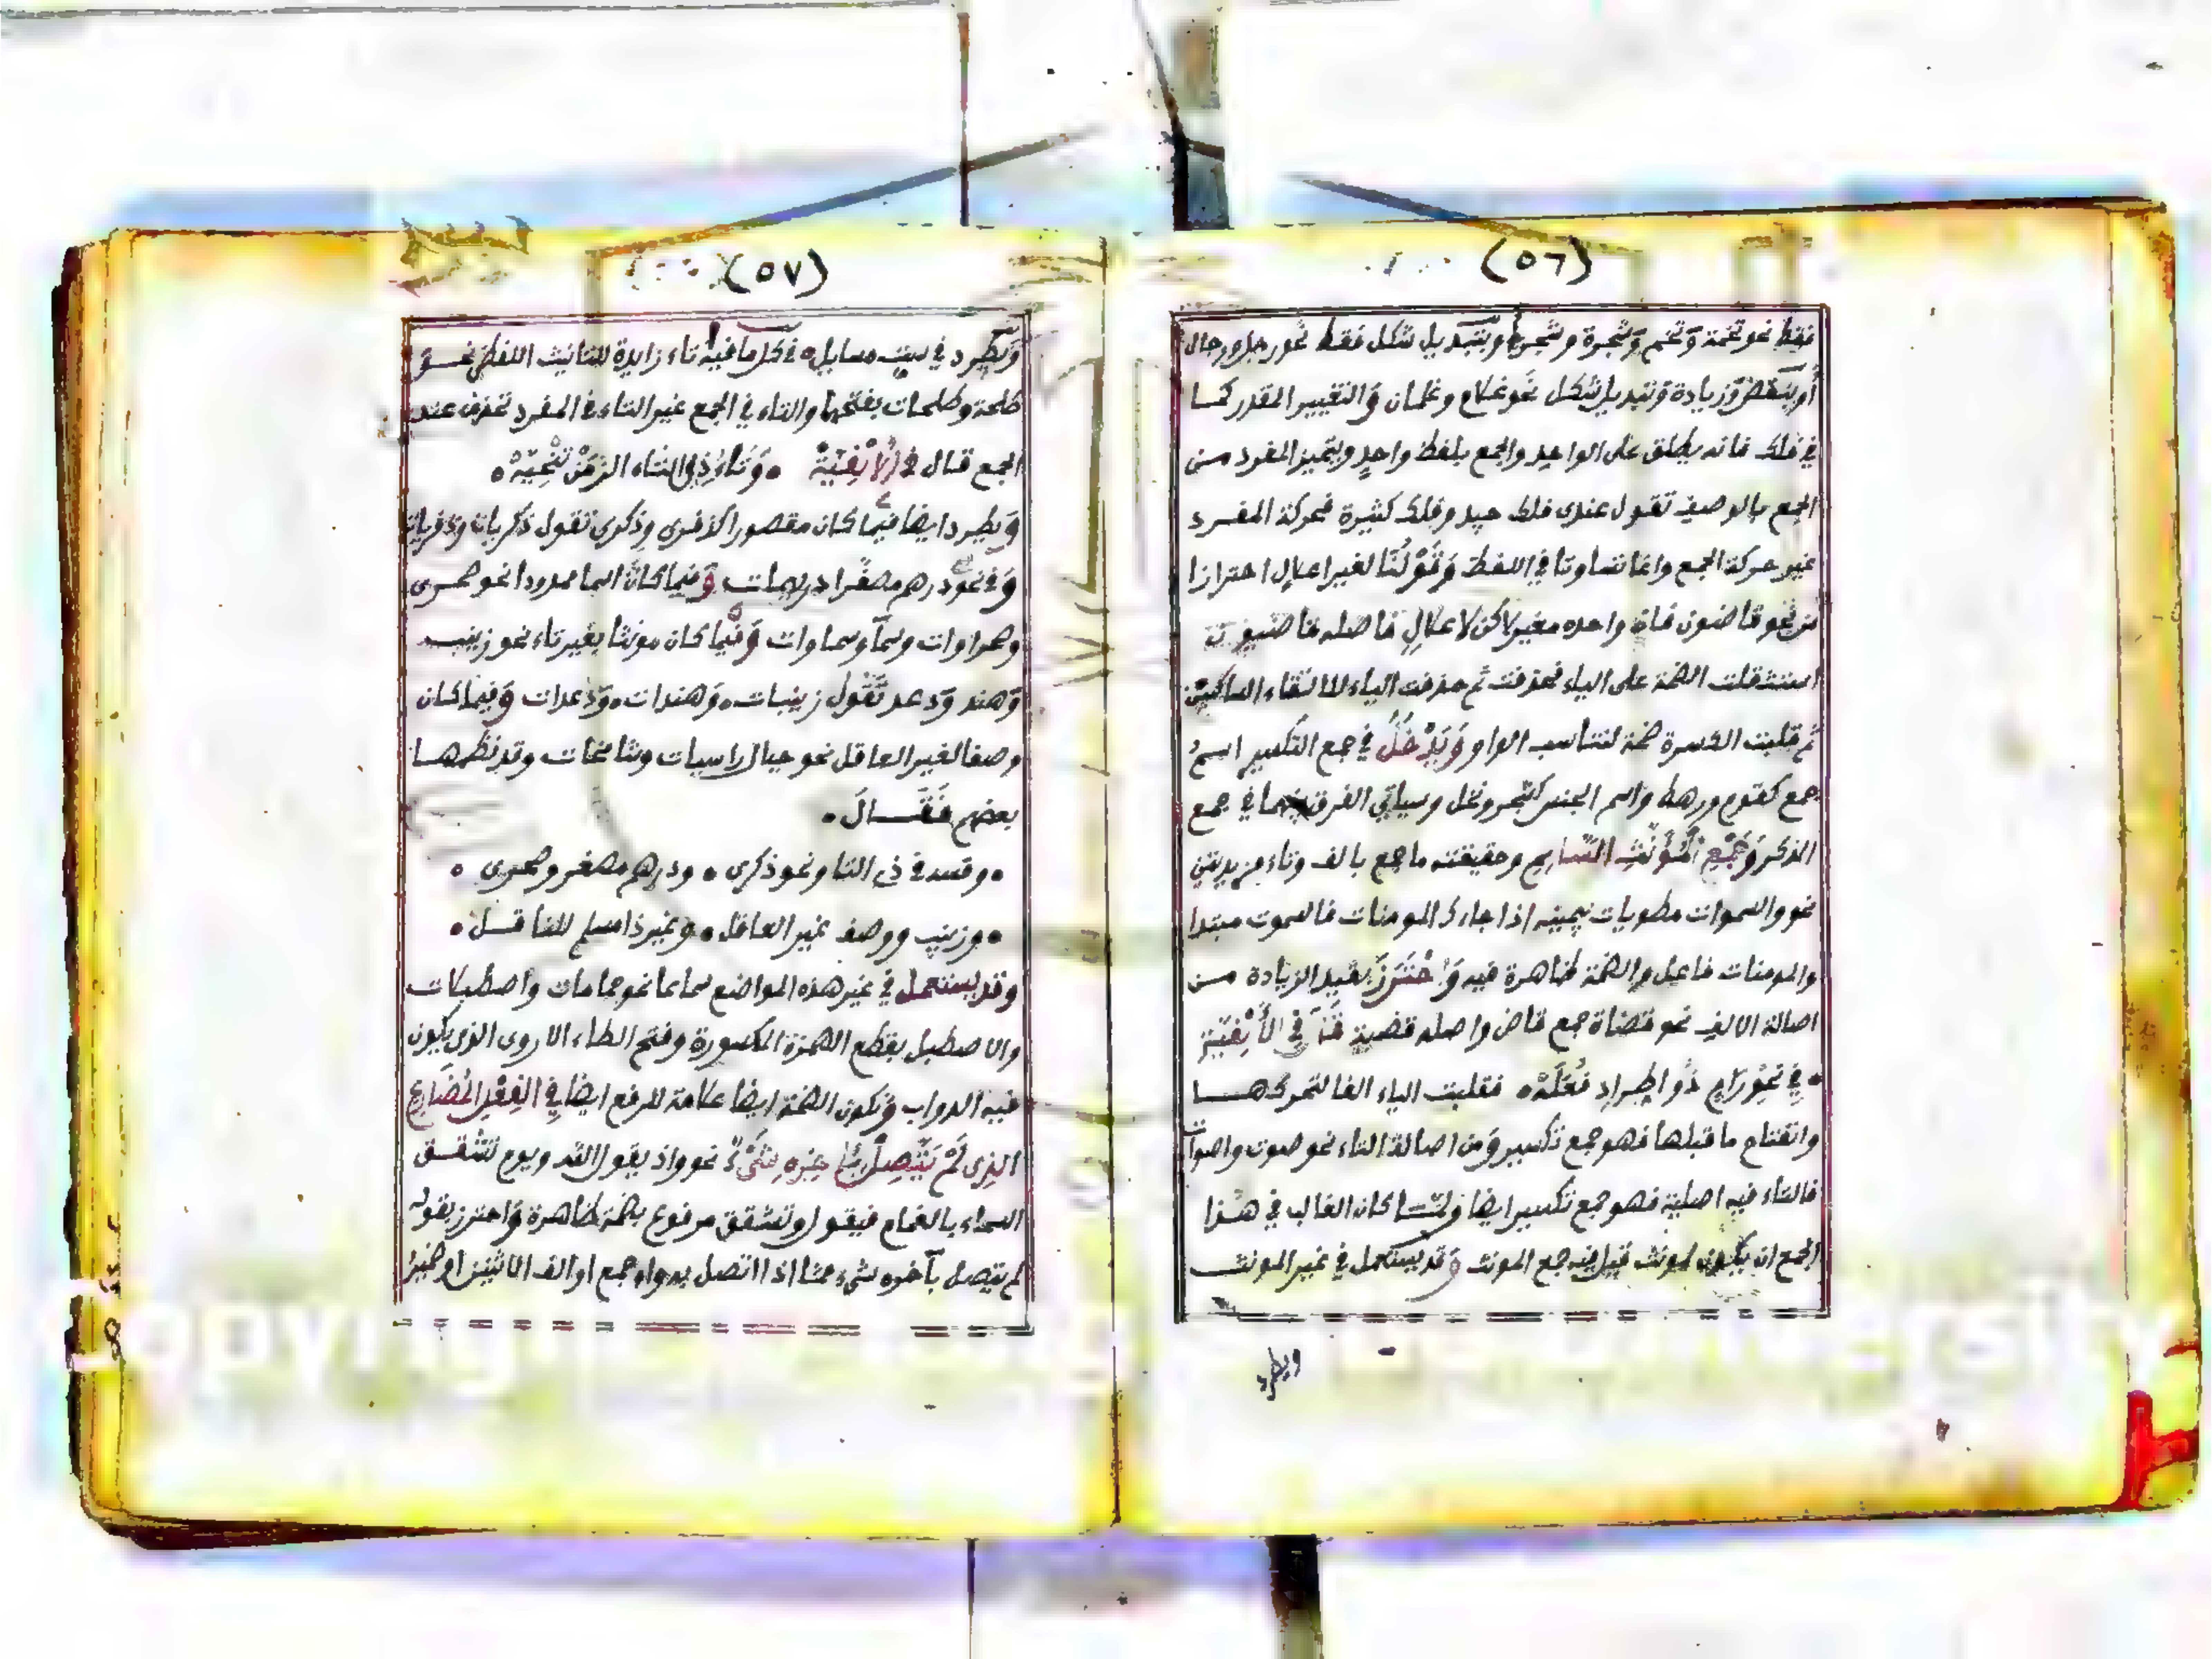 (٥٦)
فقط نحو تخمة وَتخم وَشجرة وشجر وبتبديل شكل فقط نحو رجل ورجال
أو بنقص وَزيادة وَتبديل شكل نَحو غلام وغلمان وَالتغيير المقدر كما
في فلك فانه يطلق على الواحد والجمع بلفظ واحدٍ ويتميز المفرد من
الجمع بالوصف تقول عندى فلك جيد وفلك كثيرة فحركة المفرد
غير حركة الجمع وانما تساوتا في اللفظ وَقَوْلُنَا لغير اعلالٍ احترازا
من نَحو قاضون فان واحده مغير لاكن لاعلالٍ فاصله قاضيون
استثقلت الضمة على الياء فحذفت ثم حذفت الياء لالتقاء الساكنين
ثم قلبت الكسرة ضمة لتناسب الواو وَيَدْخُلُ في جمع التكسير اسم
جمع كقوم ورهط وَاسم الجنس كشجر ونخل وسياتي الفرق بينهما في جمع
الذكر وَجَمْعِ المُؤَنَّثِ السَّالِمِ وحقيقته ما جمع بالف وتاء مزيدتين
نحو والسموات مطويات بيمينه اذا جاءك المومنات فالسموت مبتدا
والمومنات فاعل والضمة ظاهرة فيه وَاحْتَرَزَ بقيد الزيادة من
اصالة الالف نحو قضاة جمع قاض واصله قضية قَالَ فِي الأَلْفِيَّةِ
• فِي نَحْوِ رَامٍ ذُو اطِّرَادٍ فُعَلَهْ • فقلبت الياء الفا لتحركها
وانفتاح ما قبلها فهو جمع تكسير وَمن اصالة التاء نحو صوت واصوات
فالتاء فيه اصلية فهو جمع تكسير ايضا ولمَّا كان الغالب في هذا
الجمع ان يكون لمونث قيل فيه جمع المونث وَقد يستعمل في غير المونث
ويطرد
(٥٧)
وَيطرد في ست مسايل • في كل ما فيه تاء زايدة للتانيث اللفظي نحو
طلحة وطلحات بفتحها والتاء في الجمع غير التاء في المفرد تحذف عند
الجمع قال في الأَلْفِيَّةْ • وَتَاءَ ذِي التَاء الزَمَنْ تَنْحِيَهْ •
وَيطرد ايضا فيما كان مقصورا كذفرى وذكرى تقول ذكريات وذفريات
وَفي نحو درهم مصغَّرا دريهمات وَفيما كان اسما ممدودا نحو صحرى
وصحراوات وسمآ وسماوات وَفيما كان مونثا بغير تاء نحو زينب
وَهند وَدعد تَقُول زينبات • وَهندات • وَدَعدات وَفيما كان
وصفا لغير العاقل نحو جبال راسيات وشامخات وقد نظمها
بعضهم فَقَـالَ •
• وقسه في ذي التا ونحو ذكرى • ودرهم مصغر وصحرى •
• وزينب ووصف غير العاقل • وغير ذا مسلم للناقل •
وقد يستعمل في غير هذه المواضع سماعا نحو حمامات واصطبلات
والاصطبل بقطع الهمزة المكسورة وفتح الطاء الاروى الذى يكون
فيه الدواب وَتكون الضمة ايضا علامة للرفع ايضا فِي الفِعْلِ المُضَارِعِ
الذِى لَمْ يَتَّصِلْ بِآخِرِهِ شَيْءٌ نحو واذ يقول الله ويوم تشقق
السماء بالغمام فيقول وتشقق مرفوع بضمة ظاهرة وَاحترز بقوله
لم يتصل بآخره شيء مما اذا اتصل به واو جمع او الف الاثنين او ضمير